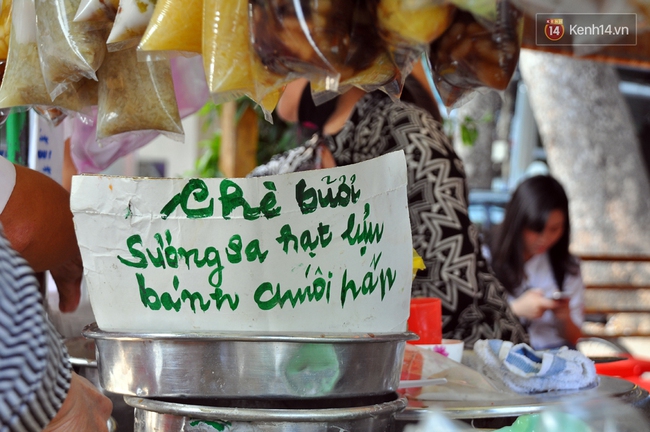 14 Kenh14.vn
Chè bưởi
Sương sa hạt lựu
bánh chuối hấp